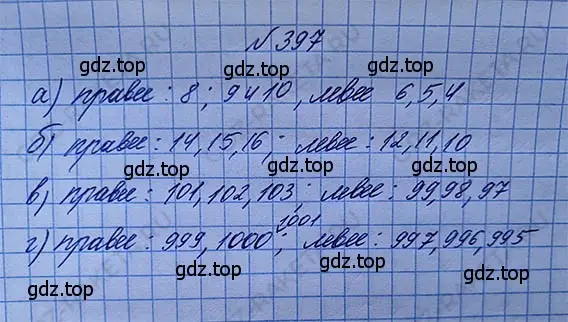 № 397
gdz.top gdz.top
а) правее: 8; 9 и 10, левее 6, 5, 4
gdz.top gdz.top
б) правее: 14, 15, 16; левее: 12, 11, 10
gdz.top gdz.top
в) правее: 101, 102, 103; левее: 99, 98, 97
gdz.top gdz.top
г) правее: 999, 1000, 1001; левее: 997, 996, 995
gdz.top gdz.top